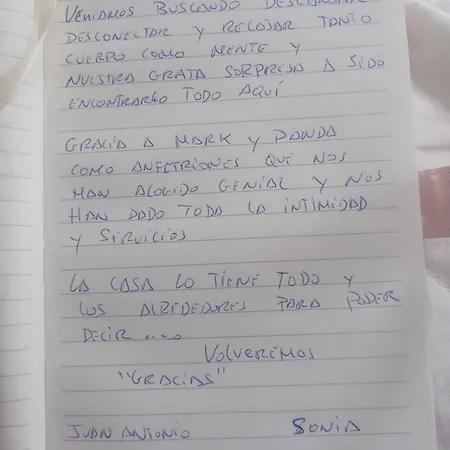 VENIAMOS BUSCANDO DESCANSAR
DESCONECTAR Y RELAJAR TANTO
CUERPO COMO MENTE Y
NUESTRA GRATA SORPRESA A SIDO
ENCONTRARLO TODO AQUÍ
GRACIA A MARK Y PANDA
COMO ANFITRIONES QUE NOS
HAN ACOGIDO GENIAL Y NOS
HAN DADO TODA LA INTIMIDAD
Y SERVICIOS
LA CASA LO TIENE TODO Y
LOS ALREDEDORES PARA PODER
DECIR.....
VOLVEREMOS
"GRACIAS"
JUAN ANTONIO SONIA